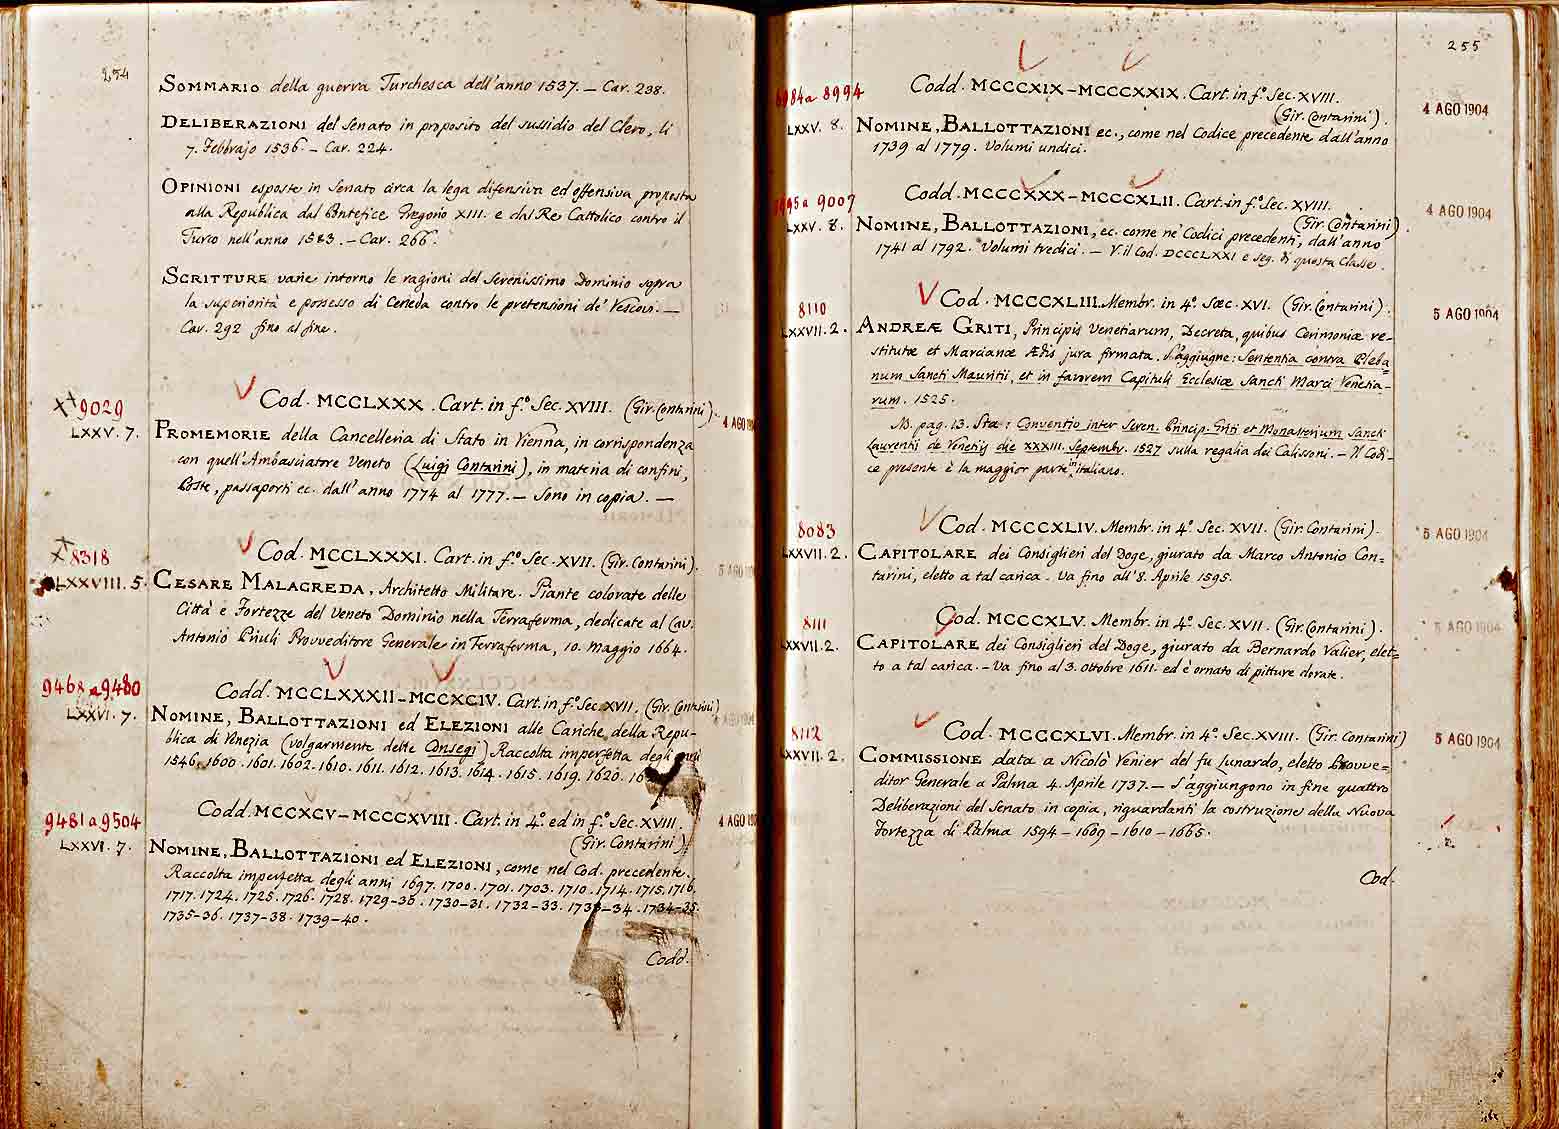 254
SOMMARIO della guerra Turchesca dell'anno 1537. — Car. 238.
DELIBERAZIONI del Senato in proposito del sussidio del Clero, li
7. Febbrajo 1536. — Car. 224.
OPINIONI esposte in Senato circa la lega difensiva ed offensiva proposta
alla Republica dal Pontefice Gregorio XIII. e dal Re Cattolico contro il
Turco nell'anno 1583. — Car. 266.
SCRITTURE varie intorno le ragioni del Serenissimo Dominio sopra
la superiorità e possesso di Ceneda contro le pretensioni de' Vescovi. —
Car. 292 fino al fine.
Cod. MCCLXXX. Cart. in f.º Sec. XVIII. (Gir. Contarini).
9029
4 AGO
LXXV. 7.
PROMEMORIE della Cancelleria di Stato in Vienna, in corrispondenza
con quell'Ambasciatore Veneto (Luigi Contarini), in materia di confini,
Poste, passaporti ec. dall'anno 1774 al 1777. — Sono in copia. —
Cod. MCCLXXXI. Cart. in f.º Sec. XVII. (Gir. Contarini).
8318
5 AGO
LXXVIII. 5.
CESARE MALAGREDA, Architetto Militare. Piante colorate delle
Città e Fortezze del Veneto Dominio nella Terraferma, dedicate al Cav.
Antonio Priuli Provveditore Generale in Terraferma, 10. Maggio 1664.
9468 a 9480
Codd. MCCLXXXII–MCCXCIV. Cart. in f.º Sec. XVII. (Gir. Contarini)
LXXVI. 7.
NOMINE, BALLOTTAZIONI ed ELEZIONI alle Cariche della Repu-
blica di Venezia (volgarmente dette Consegi) Raccolta imperfetta degli anni
1546. 1600. 1601. 1602. 1610. 1611. 1612. 1613. 1614. 1615. 1619. 1620.
9481 a 9504
Codd. MCCXCV–MCCCXVIII. Cart. in 4.º ed in f.º Sec. XVIII.
4 AGO
(Gir. Contarini)
LXXVI. 7.
NOMINE, BALLOTTAZIONI ed ELEZIONI, come nel Cod. precedente.
Raccolta imperfetta degli anni 1697. 1700. 1701. 1703. 1710. 1714. 1715. 1716.
1717. 1724. 1725. 1726. 1728. 1729–30. 1730–31. 1732–33. 1733–34. 1734–35.
1735–36. 1737–38. 1739–40.
Codd.
255
Codd. MCCCXIX–MCCCXXIX. Cart. in f.º Sec. XVIII.
84 a 8994
(Gir. Contarini).
4 AGO 1904
LXXV. 8.
NOMINE, BALLOTTAZIONI ec., come nel Codice precedente dall'anno
1739 al 1779. Volumi undici.
Codd. MCCCXXX–MCCCXLII. Cart. in f.º Sec. XVIII.
95 a 9007
(Gir. Contarini).
4 AGO 1904
LXXV. 8.
NOMINE, BALLOTTAZIONI, ec. come ne' Codici precedenti, dall'anno
1741 al 1792. Volumi tredici. — V. il Cod. DCCCLXXI e seg. di questa Classe.
Cod. MCCCXLIII. Membr. in 4.º Sæc. XVI. (Gir. Contarini).
8110
5 AGO 1904
LXXVII. 2.
ANDREÆ GRITI, Principis Venetiarum, Decreta, quibus Cerimoniæ re-
stitutæ et Marcianæ Ædis jura firmata. S'aggiugne: Sententia contra Pleba=
num Sancti Mauritii, et in favorem Capituli Ecclesiæ Sancti Marci Venetia-
rum. 1525.
A pag. 13. Sta: Conventio inter Seren. Princip. Griti et Monasterium Sancti
Laurentii de Venetijs die XXXIII. Septembr. 1527 sulla regalia dei Calissoni. — Il Codi-
ce presente è la maggior parte in italiano.
Cod. MCCCXLIV. Membr. in 4.º Sec. XVII. (Gir. Contarini).
8083
5 AGO 1904
LXXVII. 2.
CAPITOLARE dei Consiglieri del Doge, giurato da Marco Antonio Con=
tarini, eletto a tal carica. Va fino all'8. Aprile 1595.
Cod. MCCCXLV. Membr. in 4.º Sec. XVII. (Gir. Contarini).
8111
5 AGO 1904
LXXVII. 2.
CAPITOLARE dei Consiglieri del Doge, giurato da Bernardo Valier, elet=
to a tal carica. — Va fino al 3. Ottobre 1611. ed è ornato di pitture dorate.
Cod. MCCCXLVI. Membr. in 4.º Sec. XVIII. (Gir. Contarini)
8112
5 AGO 1904
LXXVII. 2.
COMMISSIONE data a Nicolò Venier del fu Lunardo, eletto Provve=
ditor Generale a Palma 4. Aprile 1737. — S'aggiungono in fine quattro
Deliberazioni del Senato in copia, riguardanti la costruzione della Nuova
Fortezza di Palma 1594 – 1609 – 1610 – 1665.
Cod.